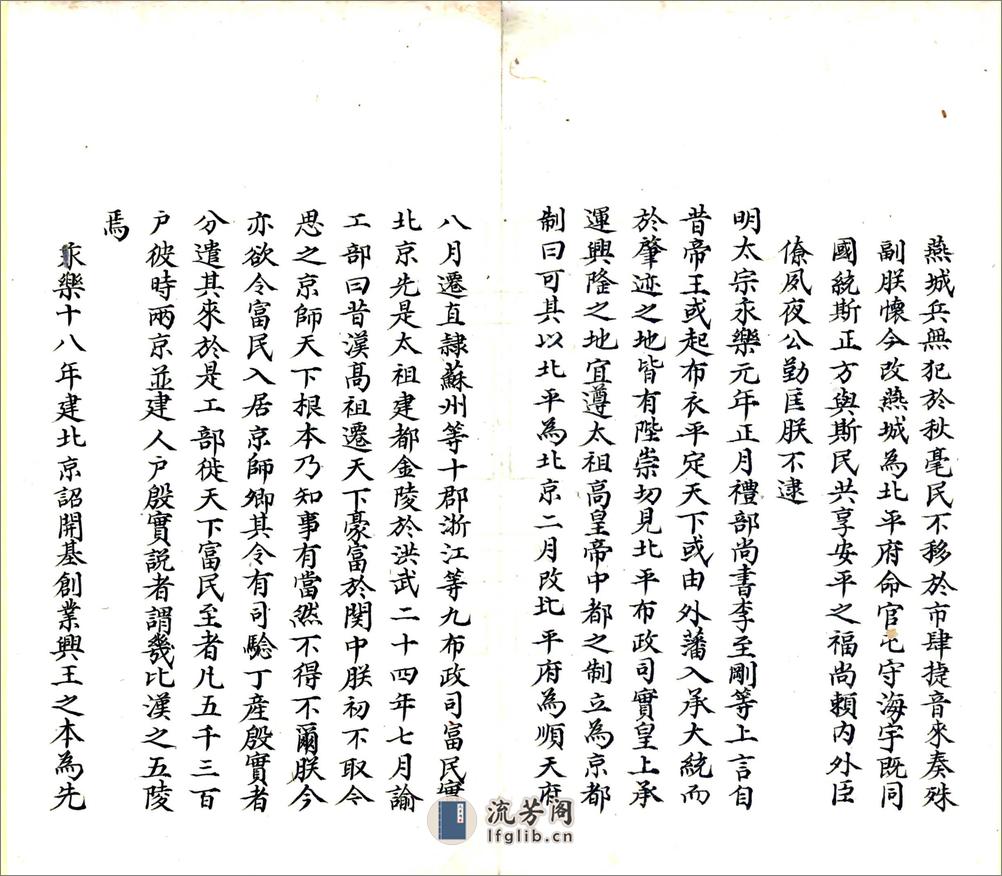 燕城兵無犯於秋毫民不移於市肆捷音來奏殊
副朕懷今改燕城為北平府命官屯守海宇既同
國統斯正方與斯民共享安平之福尚賴內外臣
僚夙夜公勤匡朕不逮
明太宗永樂元年正月禮部尚書李至剛等上言自
昔帝王或起布衣平定天下或由外藩入承大統而
於肇迹之地皆有陞崇切見北平布政司實皇上承
運興隆之地宜遵太祖高皇帝中都之制立為京都
制曰可其以北平為北京二月改北平府為順天府
八月遷直隸蘇州等十郡浙江等九布政司富民實
北京先是太祖建都金陵於洪武二十四年七月諭
工部曰昔漢高祖遷天下豪富於関中朕初不取今
思之京師天下根本乃知事有當然不得不爾朕今
亦欲令富民入居京師卿其令有司驗丁產殷實者
分遣其來於是工部徙天下富民至者凡五千三百
戶彼時兩京並建人戶殷實説者謂幾比漢之五陵
焉
永樂十八年建北京詔開基創業興王之本為先
流芳阁
lfglib.cn